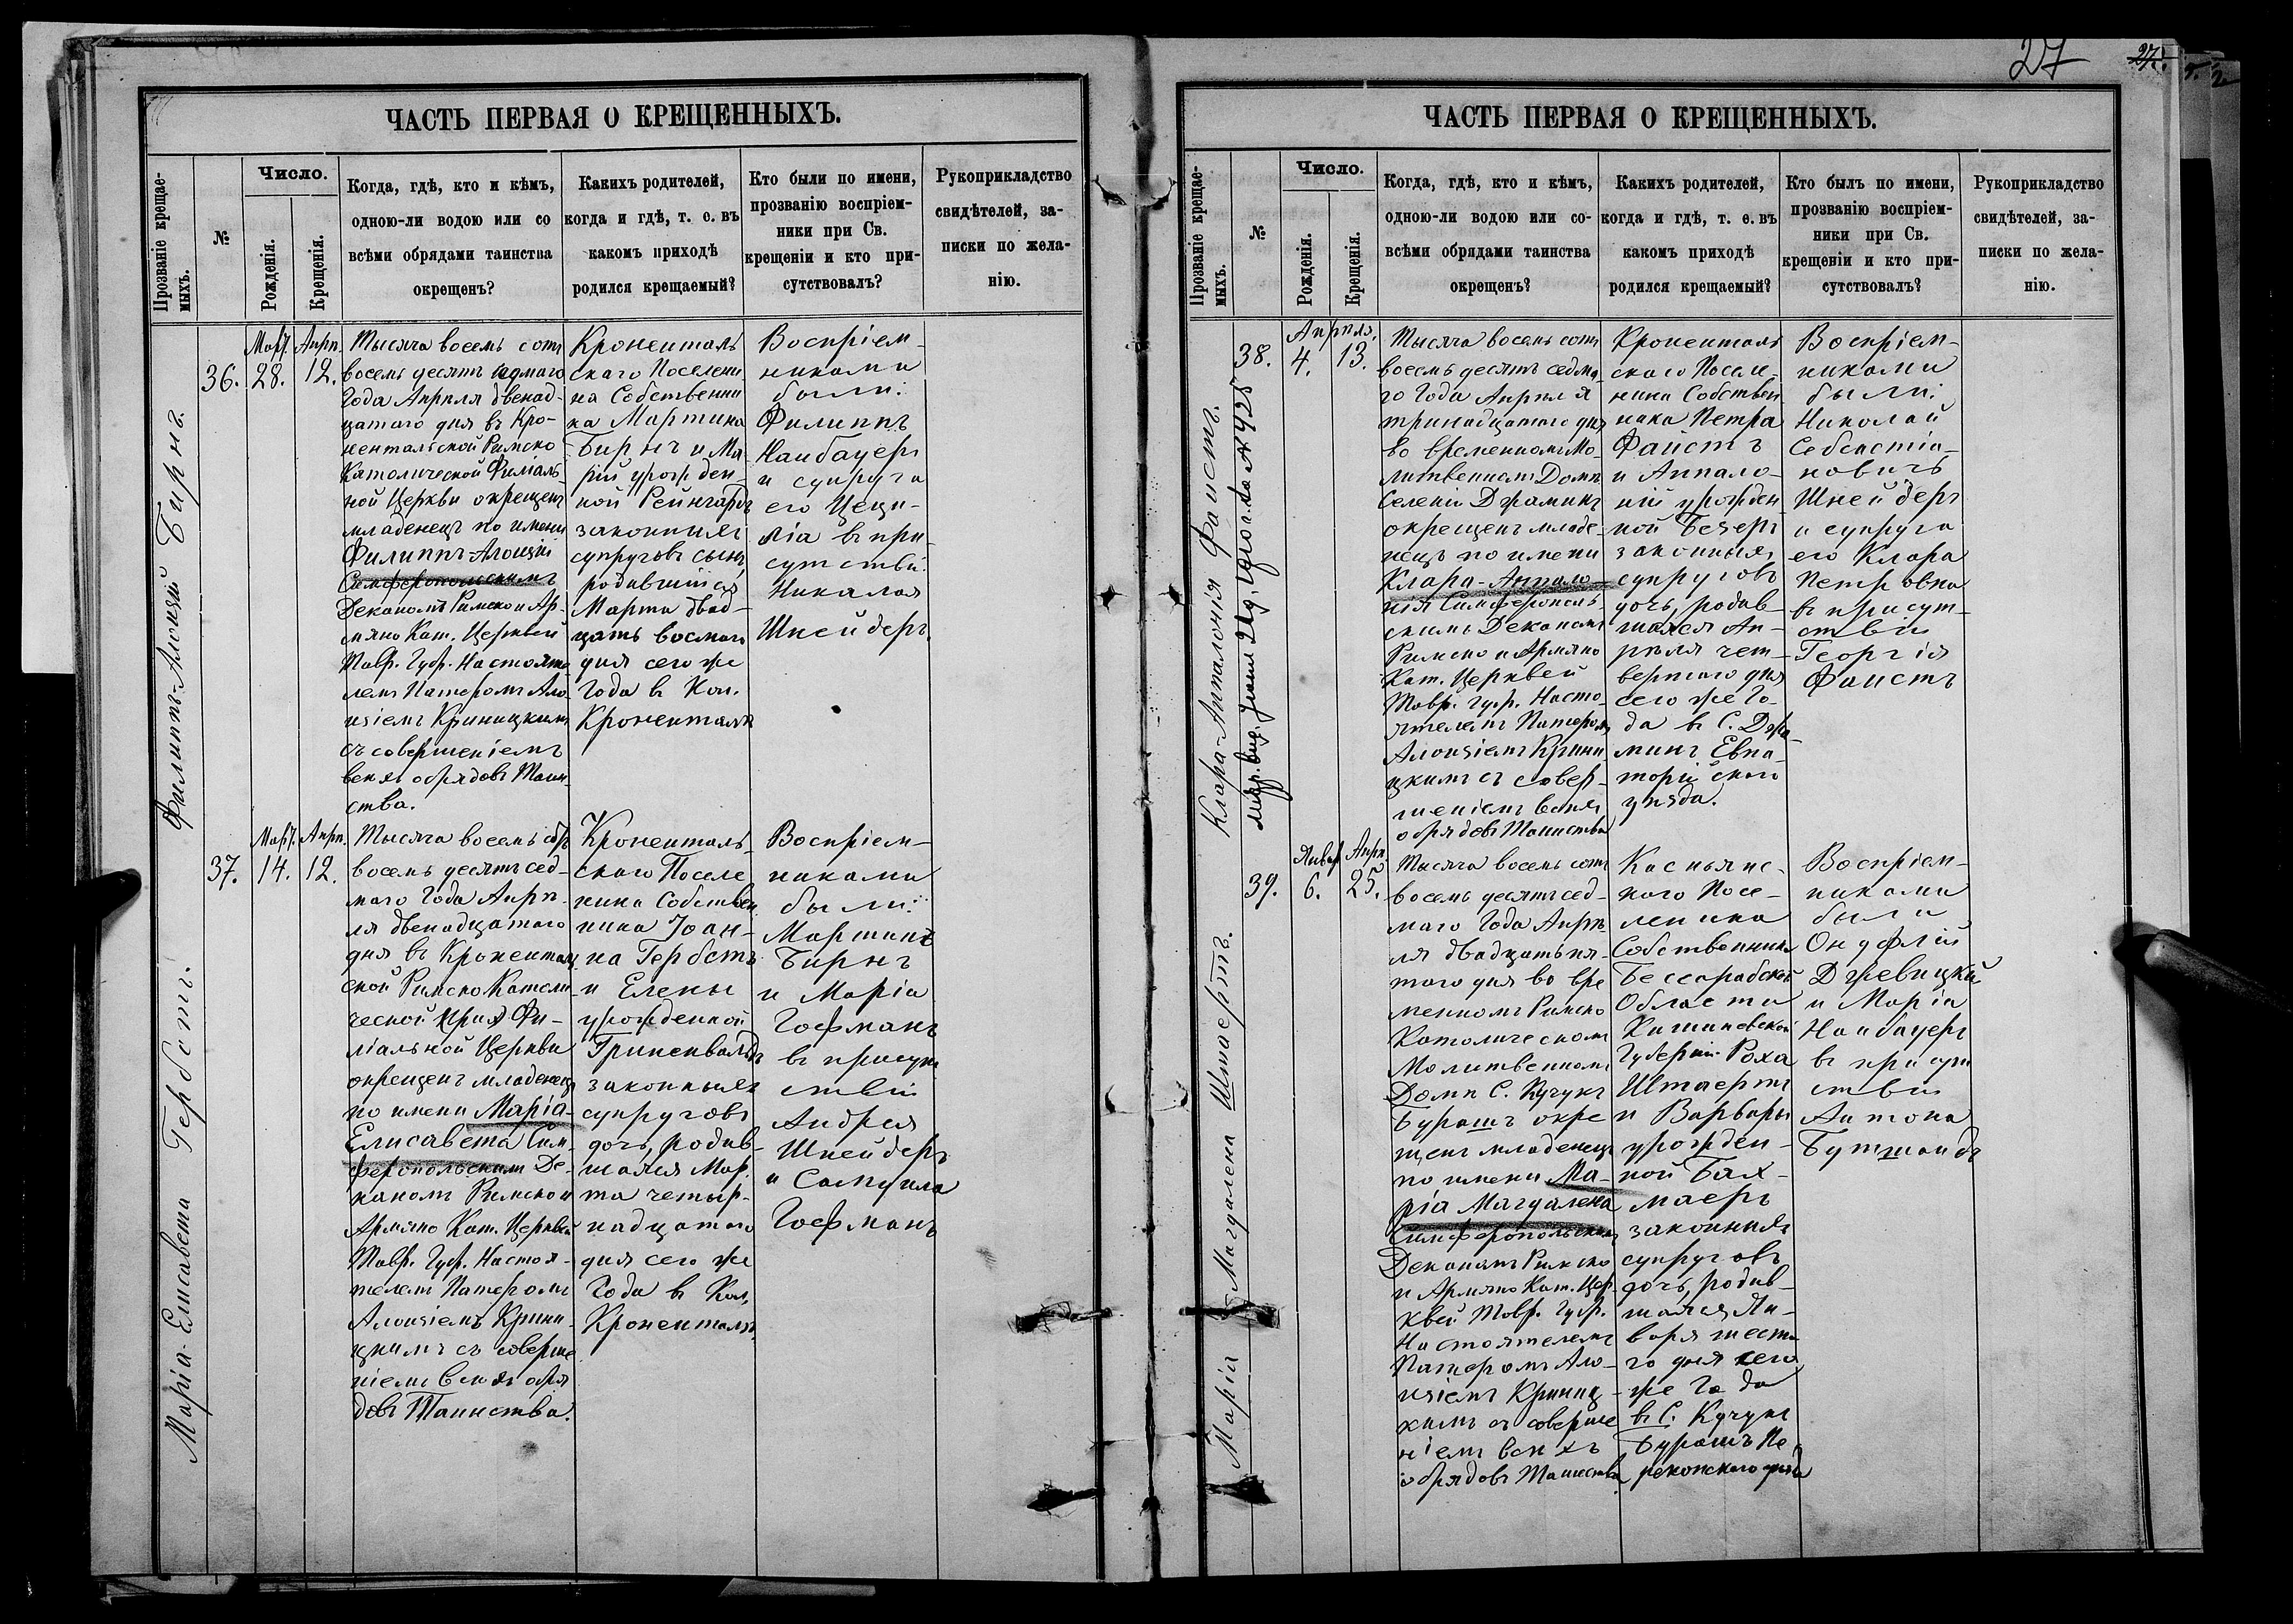 27
27.
ЧАСТЬ ПЕРВАЯ О КРЕЩЕННЫХЪ.
Прозваніе крещае-
мыхъ.
№
Число.
Рожденія.
Крещенія.
Когда, гдѣ, кто и кѣмъ,
одною-ли водою или со
всѣми обрядами таинства
окрещенъ?
Какихъ родителей,
когда и гдѣ, т. е. въ
какомъ приходѣ
родился крещаемый?
Кто были по имени,
прозванію воспріем-
ники при Св.
крещеніи и кто при-
сутствовалъ?
Рукоприкладство
свидѣтелей, за-
писки по жела-
нію.
Филиппъ-Алоизій Бирнъ.
36.
Март. 28.
Апрѣ. 12.
Тысяча восемь сотъ
восемь десятъ седмаго
Года Апрѣля двенад-
цатаго дня въ Кро-
нентальской Римско
Католической Филіаль-
ной Церкви окрещенъ
младенецъ по имени
Филиппъ-Алоизій
Симферопольскимъ
Деканомъ Римско и Ар-
мяно Кат. Церквей
Тавр. Губ. Настояте-
лемъ Патеромъ Ало-
изіемъ Криницкимъ
съ совершеніемъ
всѣхъ обрядовъ Таин-
ства.
Кроненталь
скаго Поселени
на Собственни
ка Мартина
Бирнъ и Ма
ріи урожден-
ной Рейнгардъ
законныхъ
супруговъ сынъ,
родившійся
Марта двад-
цать восмаго
дня сего же
Года в Кол.
Кроненталѣ
Воспріем-
никами
были:
Филиппъ
Наибауеръ
и супруга
его Цеци-
лія в при-
сутствіи
Николая
Шнейдеръ.
Марія-Елисавета Гербстъ.
37.
Март. 14.
Апрѣ. 12.
Тысяча восемь сотъ
восемь десятъ сед-
маго Года Апрѣ-
ля двенадцатаго
дня въ Кроненталь
ской Римско Католи
ческой Фи-
ліальной Церкви
окрещенъ младенецъ
по имени Марія-
Елисавета Сим-
феропольскимъ Де-
каномъ Римско и
Армяно Кат. Церквей
Тавр. Губ. Настоя-
телемъ Патеромъ
Алоизіемъ Крини-
цкимъ съ соверше
ніемъ всѣхъ обря
довъ Таинства.
Кроненталь-
скаго Поселе
нина Собствен
ника Іоан-
на Гербстъ
и Елены
урожденной
Гриненвальдъ
законныхъ
супруговъ
дочь, родив-
шаяся Мар-
та четыр-
надцатаго
дня сего же
Года в Кол.
Кроненталѣ.
Воспріем-
никами
были:
Мартинъ
Бирнъ
и Марія
Гофманъ
в присут
ствіи
Андрея
Шнейдеръ
и Самуила
Гофманъ
ЧАСТЬ ПЕРВАЯ О КРЕЩЕННЫХЪ.
Прозваніе крещае-
мыхъ.
№
Число.
Рожденія.
Крещенія.
Когда, гдѣ, кто и кѣмъ,
одною-ли водою или со-
всѣми обрядами таинства
окрещенъ?
Какихъ родителей,
когда и гдѣ, т. е. въ
какомъ приходѣ
родился крещаемый?
Кто былъ по имени,
прозванію воспріем-
ники при Св.
крещеніи и кто при-
сутствовалъ?
Рукоприкладство
свидѣтелей, за-
писки по жела-
нію.
Клара-Аппалонія Фаистъ.
38.
Апрѣля.
4.
13.
Тысяча восемь сотъ
восемь десятъ седма-
го Года Апрѣля
тринадцатаго дня
во временномъ Мо-
литвенномъ Домѣ
Селенія Джаминъ
окрещенъ младе-
нецъ по имени
Клара-Аппало-
нія Симферополь-
скимъ Деканомъ
Римско и Армяно
Кат. Церквей
Тавр. Губ. Насто-
ятелемъ Патеромъ
Алоизіемъ Крини
цкимъ съ совер-
шеніемъ всѣхъ
обрядовъ Таинства
Кроненталь
скаго Поселе-
нина Собствен
ника Петра
Фаистъ
и Аппало-
ніи урожден
ной Безеръ
законныхъ
супруговъ
дочь, родив-
шаяся Ап-
рѣля чет-
вертаго дня
сего же Го-
да в С. Джа-
минъ Евпа-
торійскаго
уѣзда.
Воспріем-
никами
были:
Николай
Себастіа-
новичъ
Шнейдеръ
и супруга
его Клара
Петровна
в присут-
ствіи
Георгія
Фаистъ
Марія Магдалена Штаертъ.
39.
Январ. 6.
Апрѣ. 25.
Тысяча восемь сотъ
восемь десятъ сед-
маго Года Апрѣ-
ля двадцать пя-
таго дня во вре
менномъ Римско
Католическомъ
Молитвенномъ
Домѣ С. Кучукъ
Бурашъ окре
щенъ младенецъ
по имени Ма-
рія Магдалена
Симферопольскимъ
Деканомъ Римско
и Армяно Кат. Цер-
квей Тавр. Губ.
Настоятелемъ
Патеромъ Ало-
изіемъ Криниц-
кимъ съ соверше
ніемъ всѣхъ
обрядовъ Таинства
скаго Посе-
ленина
Собственника
Бессарабской
Области
Кишиневской
Губерніи Роха
Штаертъ
и Варвары
урожден-
ной Бах-
маеръ
законныхъ
супруговъ
дочь, родив-
шаяся Ян-
варя шеста-
го дня сего
же Года
в С. Кучукъ
Бурашъ Пе-
рекопскаго уѣзда
Воспріем-
никами
были
Онуфрій
Држевицкій
и Марія
Наибауеръ
в присут
ствіи
Антона